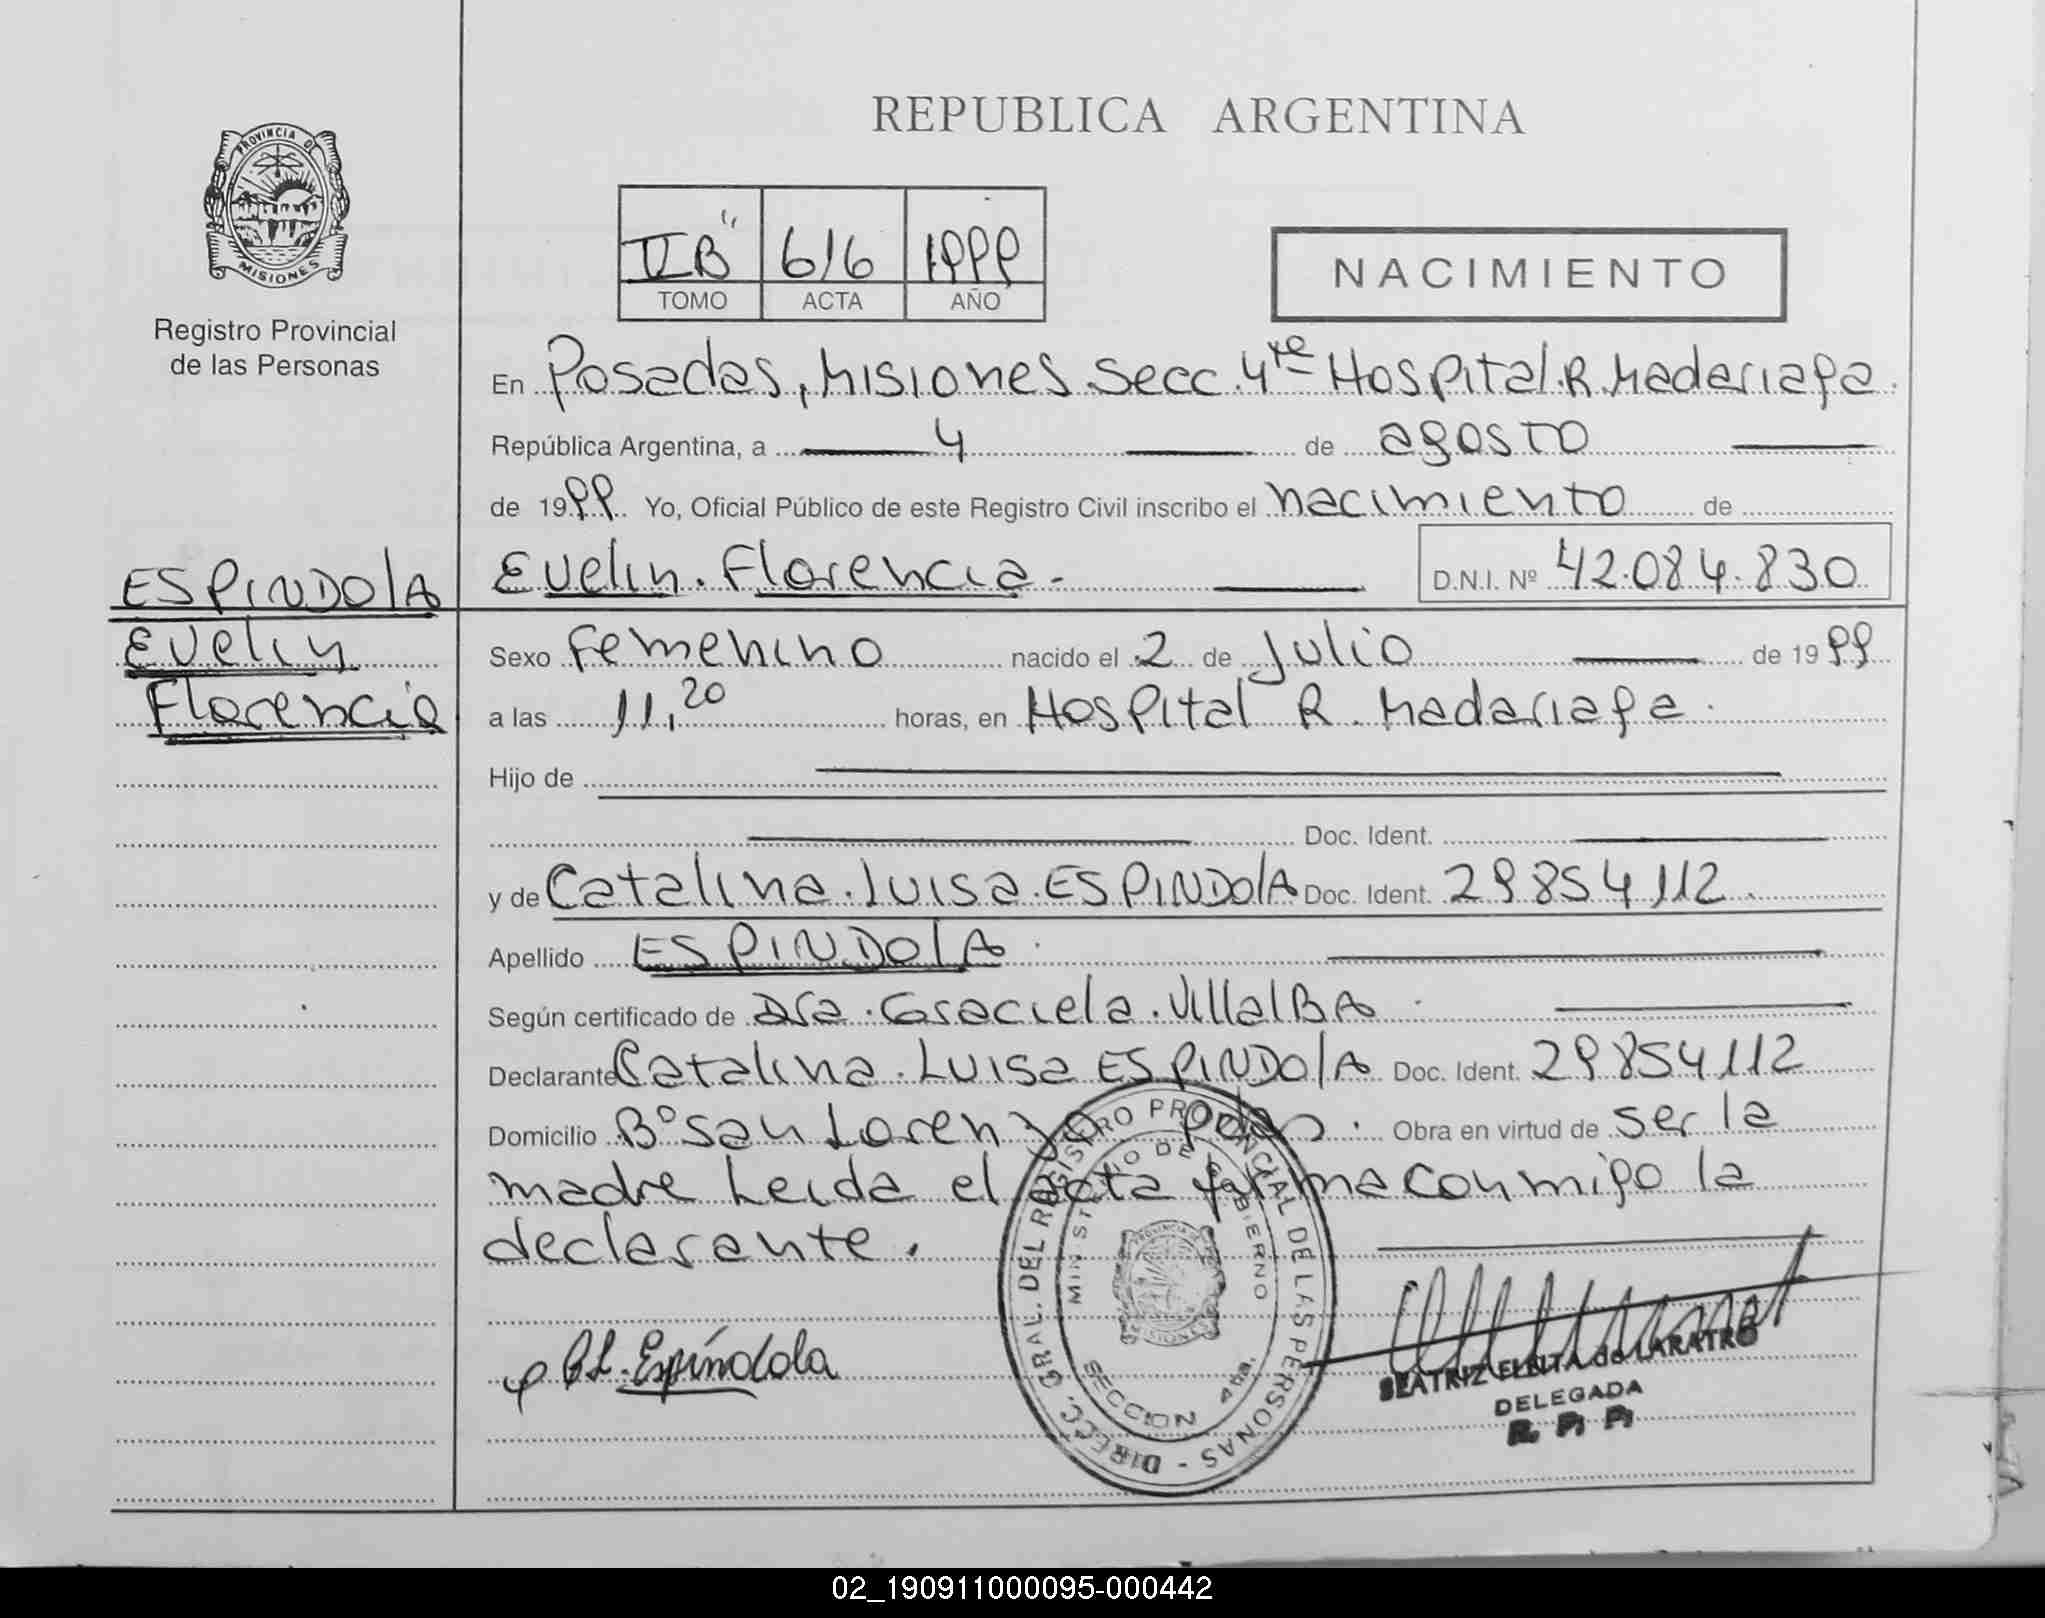 REPUBLICA ARGENTINA
PROVINCIA DE
MISIONES
Registro Provincial
de las Personas
II "B" 616 1999
TOMO ACTA AÑO
NACIMIENTO
En Posadas, Misiones Secc. 4ta Hospital R. Madariaga.
República Argentina, a 4 de agosto
de 1999 Yo, Oficial Público de este Registro Civil inscribo el nacimiento de
Evelin Florencia. D.N.I. Nº 42.084.830
ESPINDOLA
Evelin
Florencia
Sexo Femenino nacido el 2 de Julio de 1999
a las 11,20 horas, en Hospital R. Madariaga.
Hijo de
Doc. Ident.
y de Catalina Luisa ESPINDOLA Doc. Ident. 29854112.
Apellido ESPINDOLA.
Según certificado de Dra. Graciela Villalba.
Declarante Catalina Luisa ESPINDOLA Doc. Ident. 29854112
Domicilio Bº San Lorenzo pdas. Obra en virtud de ser la
madre Leida el acta firma conmigo la
declarante.
DIREC. GRAL. DEL REGISTRO PROVINCIAL DE LAS PERSONAS -
MINISTERIO DE GOBIERNO
PROVINCIA DE
MISIONES
SECCION 4ta.
C.L. Espíndola
BEATRIZ de LARATRO
DELEGADA
R. P. P.
02_190911000095-000442